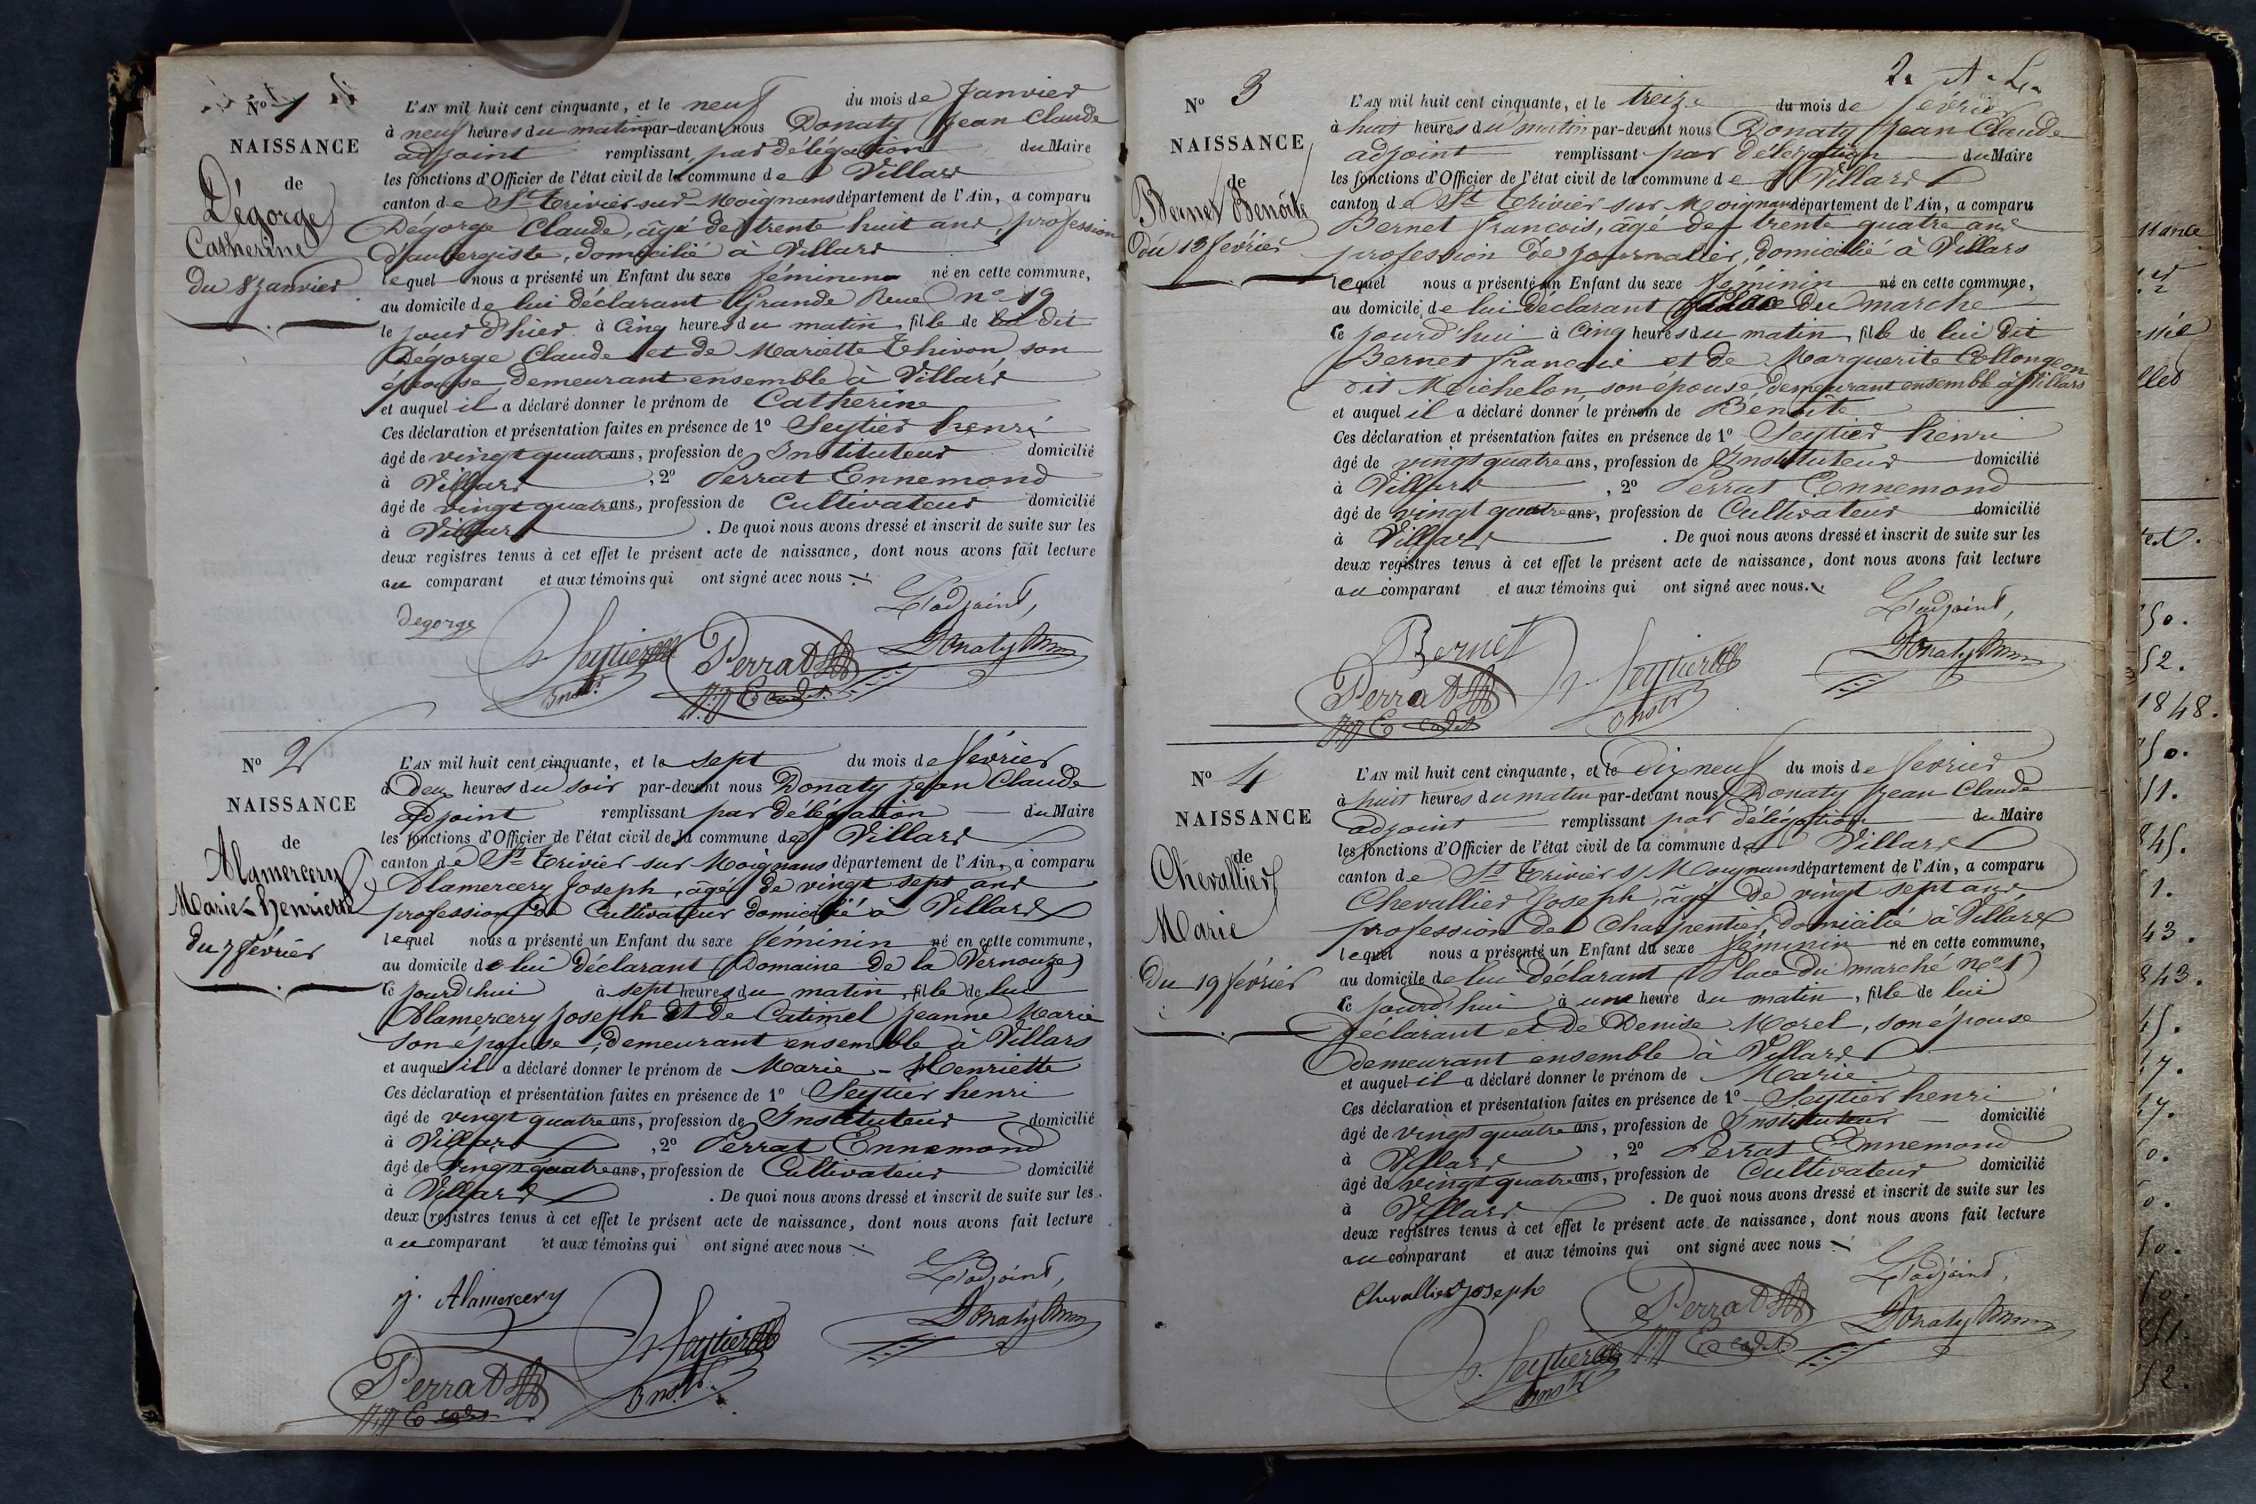 N° 1
NAISSANCE
de
Dégorge
Catherine
du 8 janvier
L'AN mil huit cent cinquante, et le neuf du mois de Janvier
à neuf heures du matin par-devant nous Donaty Jean Claude
adjoint remplissant par délégation du Maire
les fonctions d'Officier de l'état civil de la commune de Villars
canton de St Trivier-sur-Moignans département de l'Ain, a comparu
Dégorge Claude, âgé de trente huit ans, profession
d'aubergiste, domicilié à Villars
lequel nous a présenté un Enfant du sexe féminin né en cette commune,
au domicile de lui déclarant Grande Rue n° 19
le jour d'hier à cinq heures du matin, fille de lui dit
Dégorge Claude et de Mariette Thivon, son
épouse demeurant ensemble à Villars
et auquel il a déclaré donner le prénom de Catherine
Ces déclaration et présentation faites en présence de 1° Seytier henri
âgé de vingt quatre ans, profession de Instituteur domicilié
à Villars, 2° Perrat Ennemond
âgé de vingt quatre ans, profession de Cultivateur domicilié
à Villars. De quoi nous avons dressé et inscrit de suite sur les
deux registres tenus à cet effet le présent acte de naissance, dont nous avons fait lecture
au comparant et aux témoins qui ont signé avec nous.
L'adjoint,
degorge
Seytier
Perrat
Donaty
Instr
E cadet
N° 2
NAISSANCE
de
Alamercery
Marie-henriette
du 7 février
L'AN mil huit cent cinquante, et le sept du mois de février
à Deux heures du soir par-devant nous Donaty Jean Claude
adjoint remplissant par délégation du Maire
les fonctions d'Officier de l'état civil de la commune de Villars
canton de St Trivier sur Moignans département de l'Ain, a comparu
Alamercery Joseph, âgé de vingt sept ans
profession de Cultivateur domicilié à Villars
lequel nous a présenté un Enfant du sexe féminin né en cette commune,
au domicile de lui déclarant (Domaine de la Vernouze)
ce jourd'hui à sept heures du matin, fille de lui
Alamercery Joseph et de Catimel Jeanne Marie
son épouse, demeurant ensemble à Villars
et auquel il a déclaré donner le prénom de Marie-Henriette
Ces déclaration et présentation faites en présence de 1° Seytier henri
âgé de vingt quatre ans, profession de Instituteur domicilié
à Villars, 2° Perrat Ennemond
âgé de vingt quatre ans, profession de Cultivateur domicilié
à Villars. De quoi nous avons dressé et inscrit de suite sur les
deux registres tenus à cet effet le présent acte de naissance, dont nous avons fait lecture
au comparant et aux témoins qui ont signé avec nous.
L'adjoint,
j. Alamercery
Seytier
Donaty
Perrat
Instr.
E cadet
2
N° 3
NAISSANCE
de
Bernet Benôite
du 13 février
L'AN mil huit cent cinquante, et le treize du mois de février
à huit heures du matin par-devant nous Donaty Jean Claude
adjoint remplissant par délégation du Maire
les fonctions d'Officier de l'état civil de la commune de Villars
canton de St Trivier sur Moignans département de l'Ain, a comparu
Bernet françois, âgé de trente quatre ans
profession de Journalier, domicilié à Villars
lequel nous a présenté un Enfant du sexe féminin né en cette commune,
au domicile de lui déclarant Place du marché
ce jourd'hui à cinq heures du matin, fille de lui dit
Bernet françois et de Marguerite Collongeon
dit Michelon, son épouse, demeurant ensemble à Villars
et auquel il a déclaré donner le prénom de Bénoîte
Ces déclaration et présentation faites en présence de 1° Seytier henri
âgé de vingt quatre ans, profession de Instituteur domicilié
à Villars, 2° Perrat Ennemond
âgé de vingt quatre ans, profession de Cultivateur domicilié
à Villars. De quoi nous avons dressé et inscrit de suite sur les
deux registres tenus à cet effet le présent acte de naissance, dont nous avons fait lecture
au comparant et aux témoins qui ont signé avec nous.
L'adjoint,
Bernet
Seytier
Donaty
Perrat
Instr
E cadet
N° 4
NAISSANCE
de
Chevallier
Marie
Du 19 février
L'AN mil huit cent cinquante, et le Dix neuf du mois de février
à huit heures du matin par-devant nous Donaty Jean Claude
adjoint remplissant par délégation du Maire
les fonctions d'Officier de l'état civil de la commune de Villars
canton de St Trivier s/ Moignans département de l'Ain, a comparu
Chevallier Joseph, âgé de vingt sept ans
profession de Charpentier, domicilié à Villars
lequel nous a présenté un Enfant du sexe féminin né en cette commune,
au domicile de lui déclarant (Place du marché n° 1)
ce jourd'hui à une heure du matin, fille de lui
déclarant et de Denise Morel, son épouse
demeurant ensemble à Villars
et auquel il a déclaré donner le prénom de Marie
Ces déclaration et présentation faites en présence de 1° Seytier henri
âgé de vingt quatre ans, profession de Instituteur domicilié
à Villars, 2° Perrat Ennemond
âgé de vingt quatre ans, profession de Cultivateur domicilié
à Villars. De quoi nous avons dressé et inscrit de suite sur les
deux registres tenus à cet effet le présent acte de naissance, dont nous avons fait lecture
au comparant et aux témoins qui ont signé avec nous
L'adjoint,
Chevallier Joseph
Perrat
Donaty
Seytier
E cadet
Instr
1848.